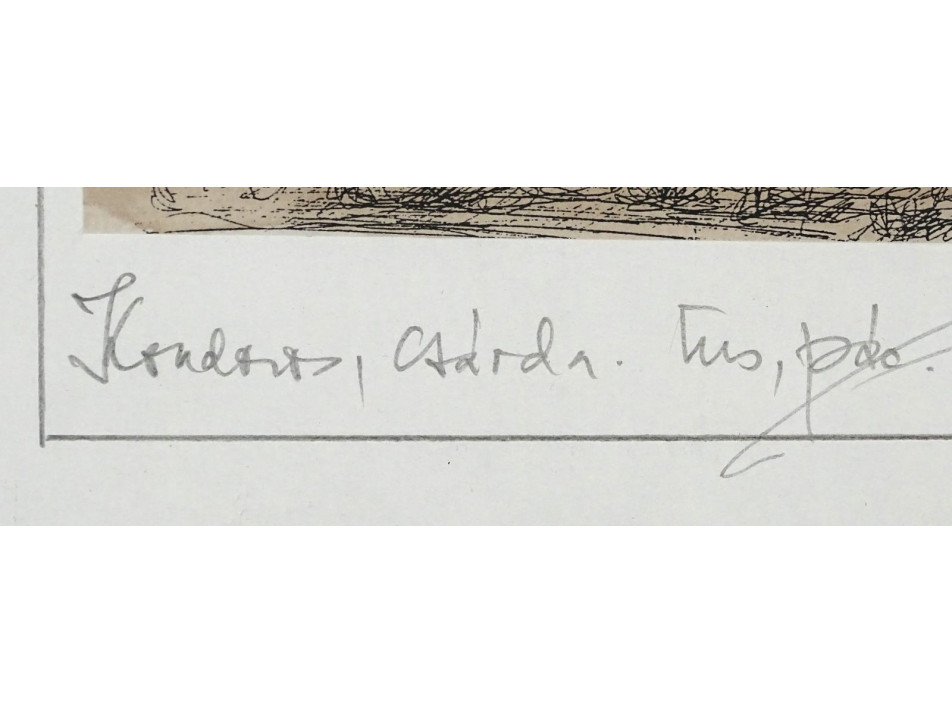 Kondoros, csárda. Tus, pác.